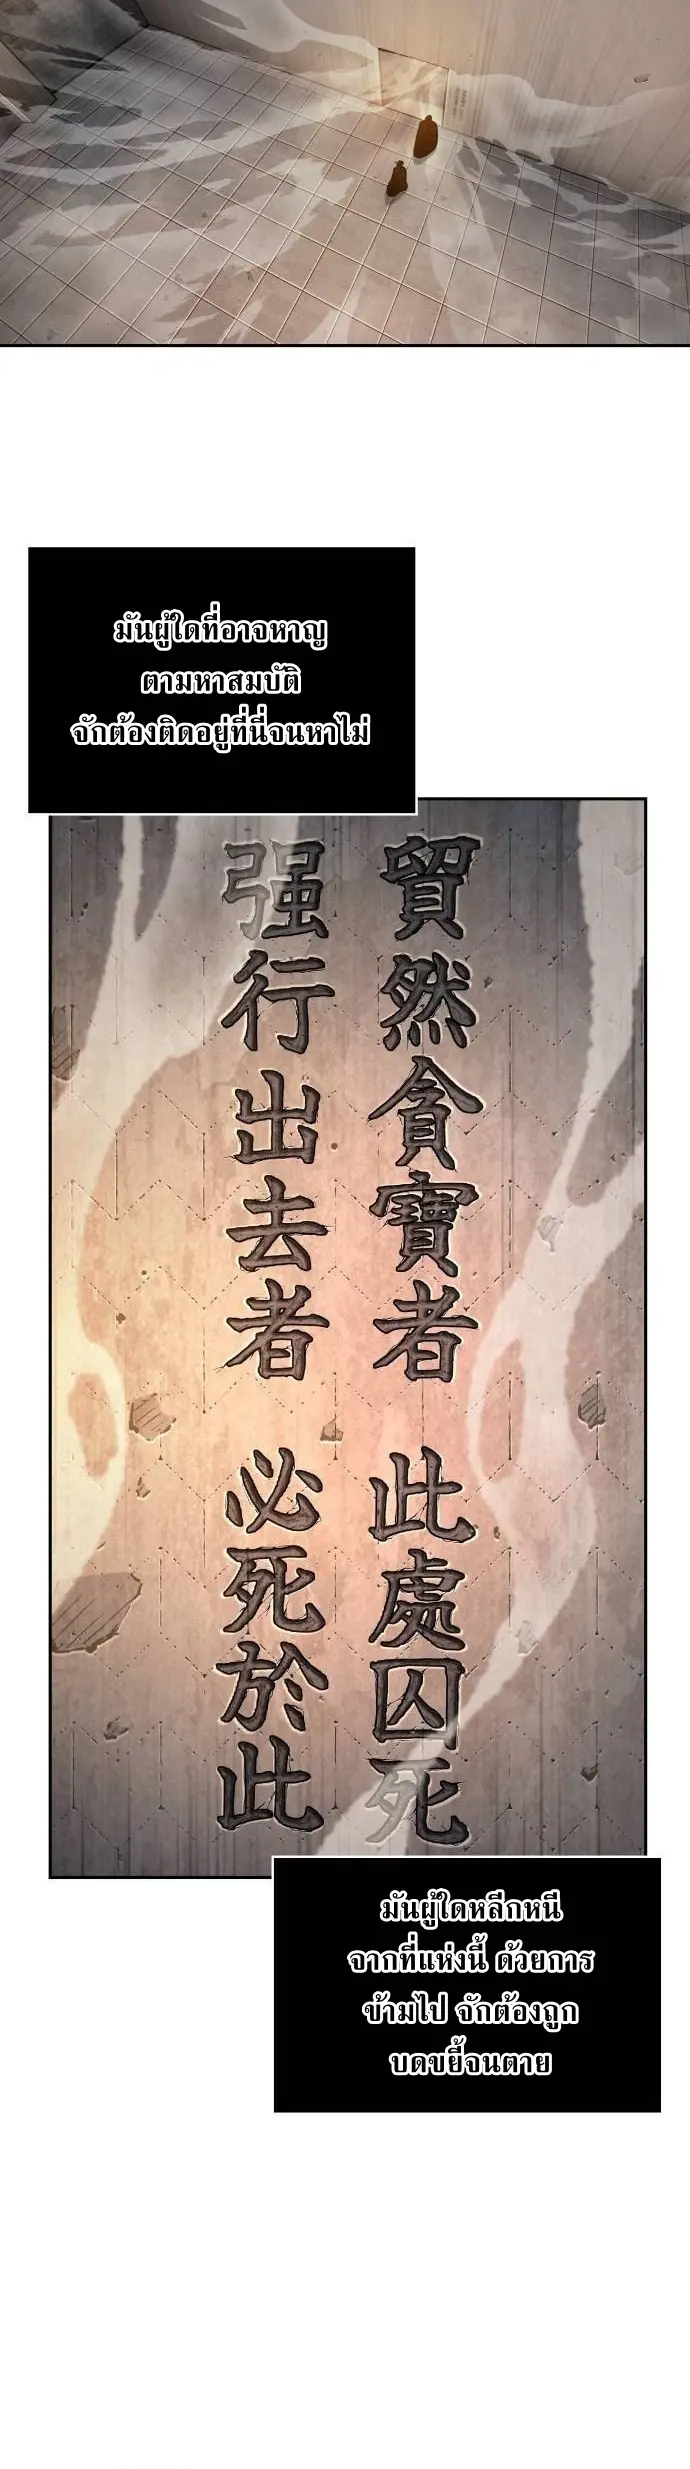 มันผู้ใดที่อาจหาญ
ตามหาสมบัติ
จักต้องติดอยู่ที่นี่จนหาไม่
貿然貪寶者 此處囚死
强行出去者 必死於此
มันผู้ใดหลีกหนี
จากที่แห่งนี้ ด้วยการ
ข้ามไป จักต้องถูก
บดขยี้จนตาย